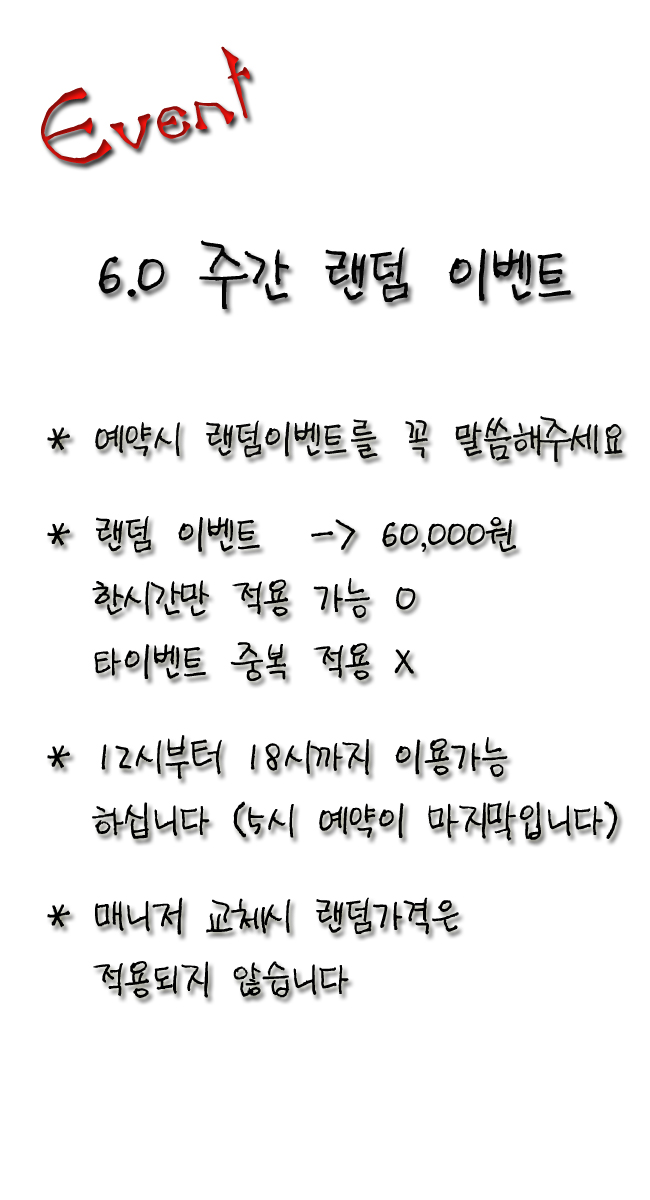 Event
6.0 주간 랜덤 이벤트
* 예약시 랜덤이벤트를 꼭 말씀해주세요
* 랜덤 이벤트 -> 60,000원
한시간만 적용 가능 O
타이벤트 중복 적용 X
* 12시부터 18시까지 이용가능
하십니다 (5시 예약이 마지막입니다)
* 매니저 교체시 랜덤가격은
적용되지 않습니다